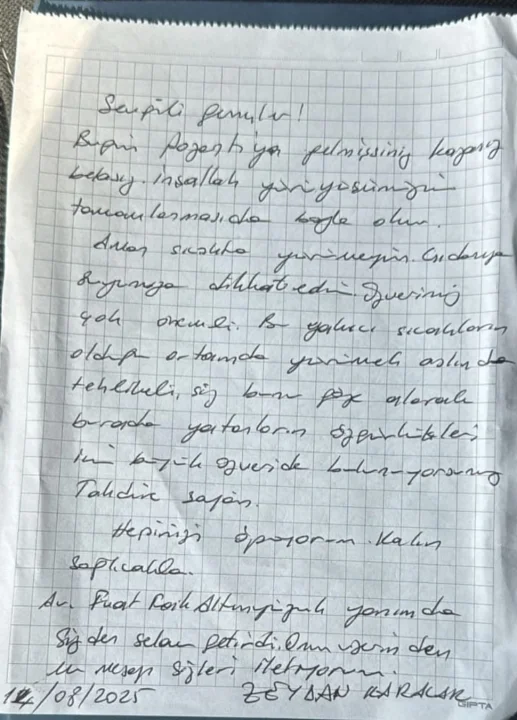 Sevgili gençler!
Bugün Pozantı'ya gelmişsiniz kazasız
belasız. İnşallah yürüyüşünüzün
tamamlanması da böyle olur.
Aman sıcakta yürümeyin. Gıdanıza
suyunuza dikkat edin. Özveriniz
çok önemli. Bu yakıcı sıcakların
olduğu ortamda yürümek aslında
tehlikeli, siz bunu göze alarak
burada yatanların özgürlükleri
için büyük özveride bulunuyorsunuz
Takdire şayan.
Hepinizi öpüyorum. Kalın
sağlıcakla.
Av. Fuat yanımda
Sizden selam getirdi. Onun üzerinden
bu mesajı sizlere iletiyorum.
14/08/2025 ZEYDAN KARALAR
GIPTA